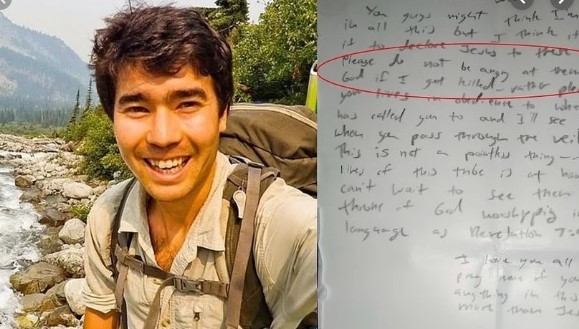 You guys might think I
in all this but I think it
is to declare Jesus to these
please do not be angy at them
God if I get killed - rather
your lives in obedience to
has called you to and I'll see
when you pass through the veil
This is not a pointless thing -
lives of this tribe is at
can't wait to see them
throne of God worshipping i
language as Revelation 7:
I love you all
pray none of you
anything in this
more than Je